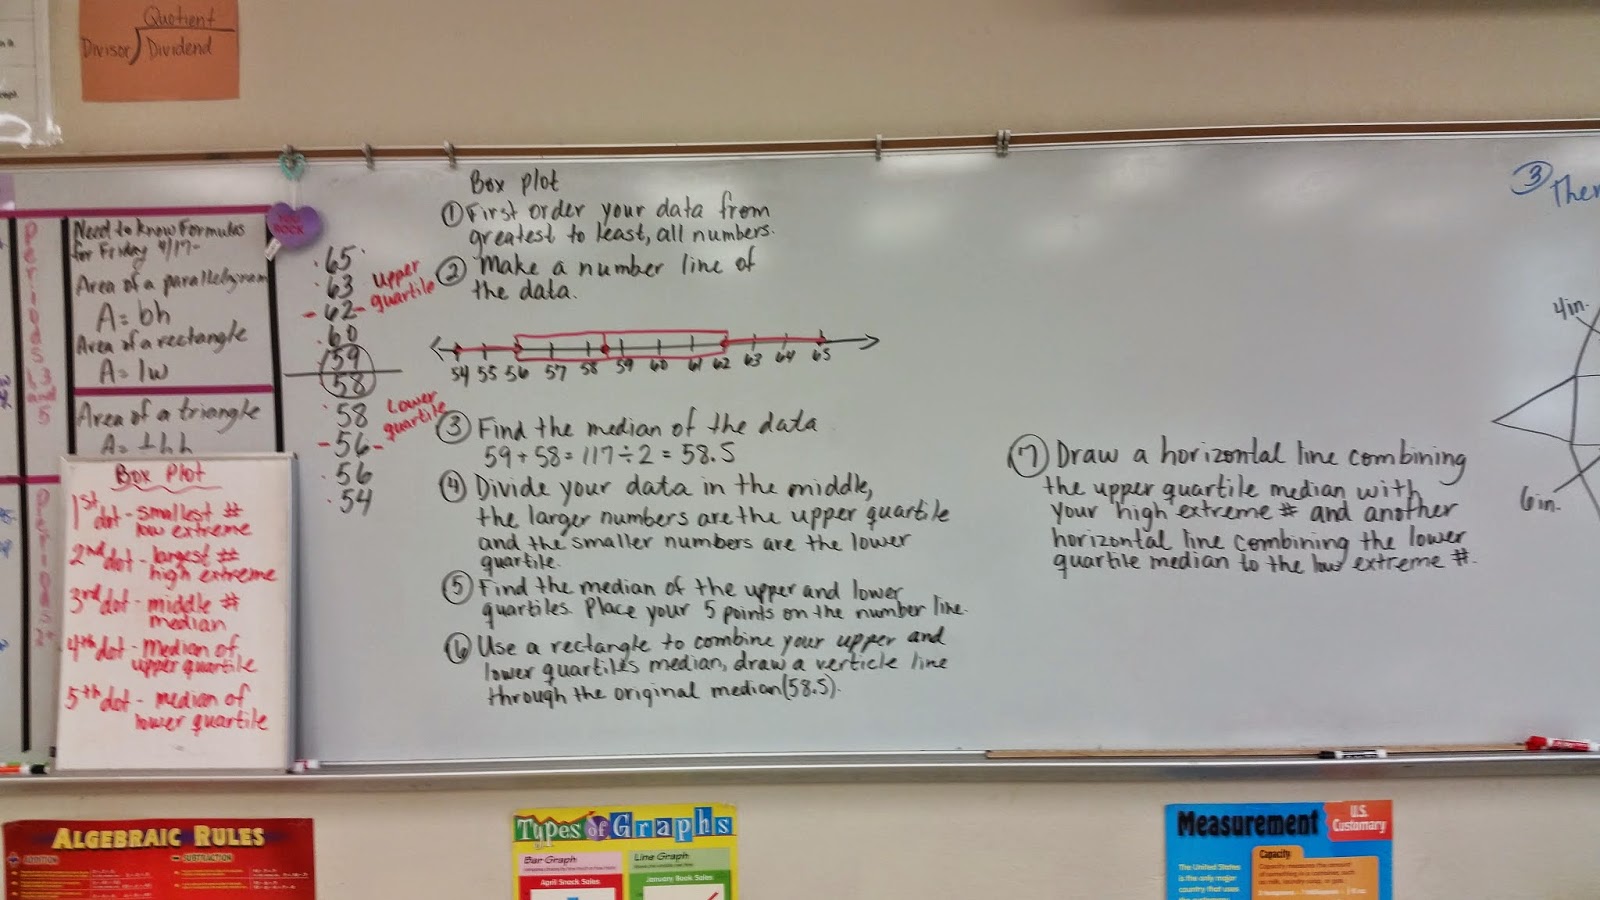 Quotient
Divisor Dividend
Periods 1,3 and 5
Need to know Formulas
for Friday 4/17-
Area of a parallelogram
A = bh
Area of a rectangle
A = lw
Area of a triangle
Periods
Box Plot
1st dot - smallest #
low extreme
2nd dot - largest #
high extreme
3rd dot - middle #
median
4th dot - Median of
upper quartile
5th dot - median of
lower quartile
ROCK
65
63
62
60
59
58
58
56
56
54
Upper
quartile
Lower
quartile
Box plot
① First order your data from
greatest to least, all numbers.
② Make a number line of
the data.
54 55 56 57 58 59 60 61 62 63 64 65
③ Find the median of the data
59 + 58 = 117 ÷ 2 = 58.5
④ Divide your data in the middle,
the larger numbers are the upper quartile
and the smaller numbers are the lower
quartile.
⑤ Find the median of the upper and lower
quartiles. Place your 5 points on the number line.
⑥ Use a rectangle to combine your upper and
lower quartiles median, draw a verticle line
through the original median (58.5).
⑦ Draw a horizontal line combining
the upper quartile median with
your high extreme # and another
horizontal line combining the lower
quartile median to the low extreme #.
③ Then
4in.
6in.
ALGEBRAIC RULES
ADDITION
SUBTRACTION
Types of Graphs
Bar Graph
April Snack Sales
Line Graph
January Book Sales
Measurement
U.S.
Customary
The United States
is the only major
Capacity